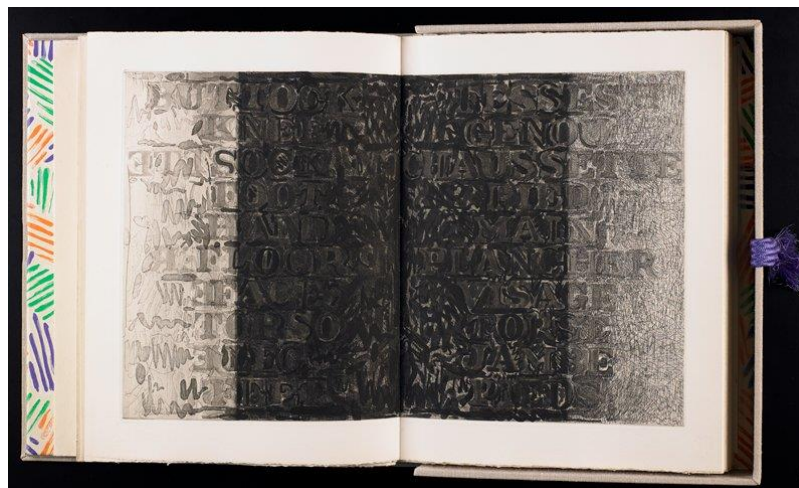 BUTTOCK
KNEE
SOCK
FOOT
HAND
FLOOR
FACE
TORSO
LEG
FEET
FESSES
GENOU
CHAUSSETTE
PIED
MAIN
PLANCHER
VISAGE
TORSE
JAMBE
PIEDS